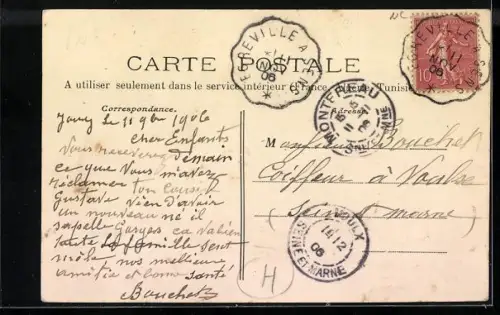 CARTE POSTALE
A utiliser seulement dans le service intérieur (France, Tunisie
Correspondance.
Adresse
le 11 9bre 1906
cher Enfants
Vous recevrez demain
ce que Vous m'avez
réclamer ton cousin
Gustave vien d'avoir
un nouveau né il
sapelle Gorges ca va bien
toute La famille sent
mêle, nos meilleure
amitié et bonne santé
Bouchet
Monsieur Bouchet
Coiffeur à Voulx
Seine et marne
EGREVILLE A
06
EGREVILLE A
06
10
MONTEREAU
11
06
VOULX
12
06
SEINE ET MARNE
H